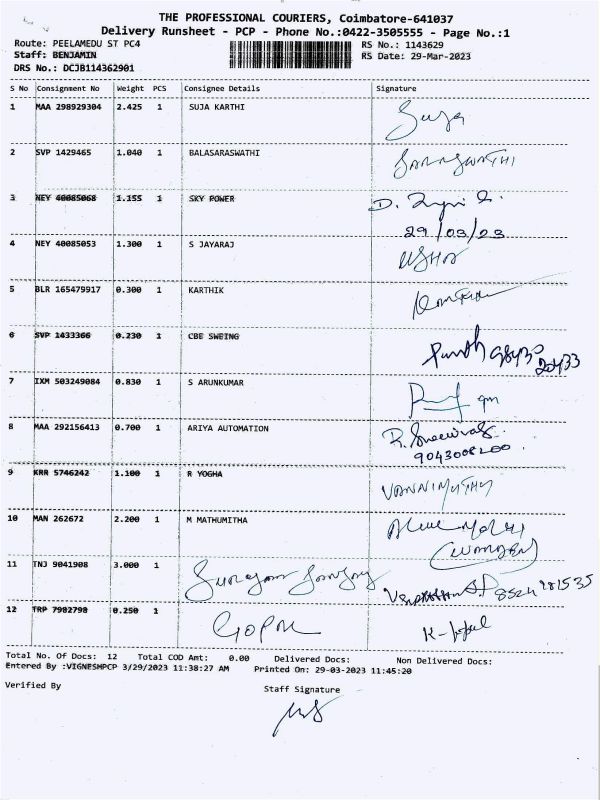 THE PROFESSIONAL COURIERS, Coimbatore-641037
Delivery Runsheet - PCP - Phone No.:0422-3505555 - Page No.:1
Route: PEELAMEDU ST PC4 RS No.: 1143629
Staff: BENJAMIN RS Date: 29-Mar-2023
DRS No.: DCJB114362901
S No Consignment No Weight PCS Consignee Details Signature
1 MAA 298929304 2.425 1 SUJA KARTHI Suja
2 SVP 1429465 1.040 1 BALASARASWATHI SARASWATHI
3 NEY 40085068 1.155 1 SKY POWER D.
29/03/23
4 NEY 40085053 1.300 1 S JAYARAJ USHA
5 BLR 165479917 0.300 1 KARTHIK Karthik
6 SVP 1433366 0.230 1 CBE SWEING
7 IXM 503249084 0.830 1 S ARUNKUMAR
8 MAA 292156413 0.700 1 ARIYA AUTOMATION R.
9 KRR 5746242 1.100 1 R YOGHA VANNIMUTHU
10 MAN 262672 2.200 1 M MATHUMITHA
11 TNJ 9041908 3.000 1
12 TRP 7902798 0.250 1 GOPAL
Total No. Of Docs: 12 Total COD Amt: 0.00 Delivered Docs: Non Delivered Docs:
Entered By :VIGNESHPCP 3/29/2023 11:38:27 AM Printed On: 29-03-2023 11:45:20
Verified By Staff Signature